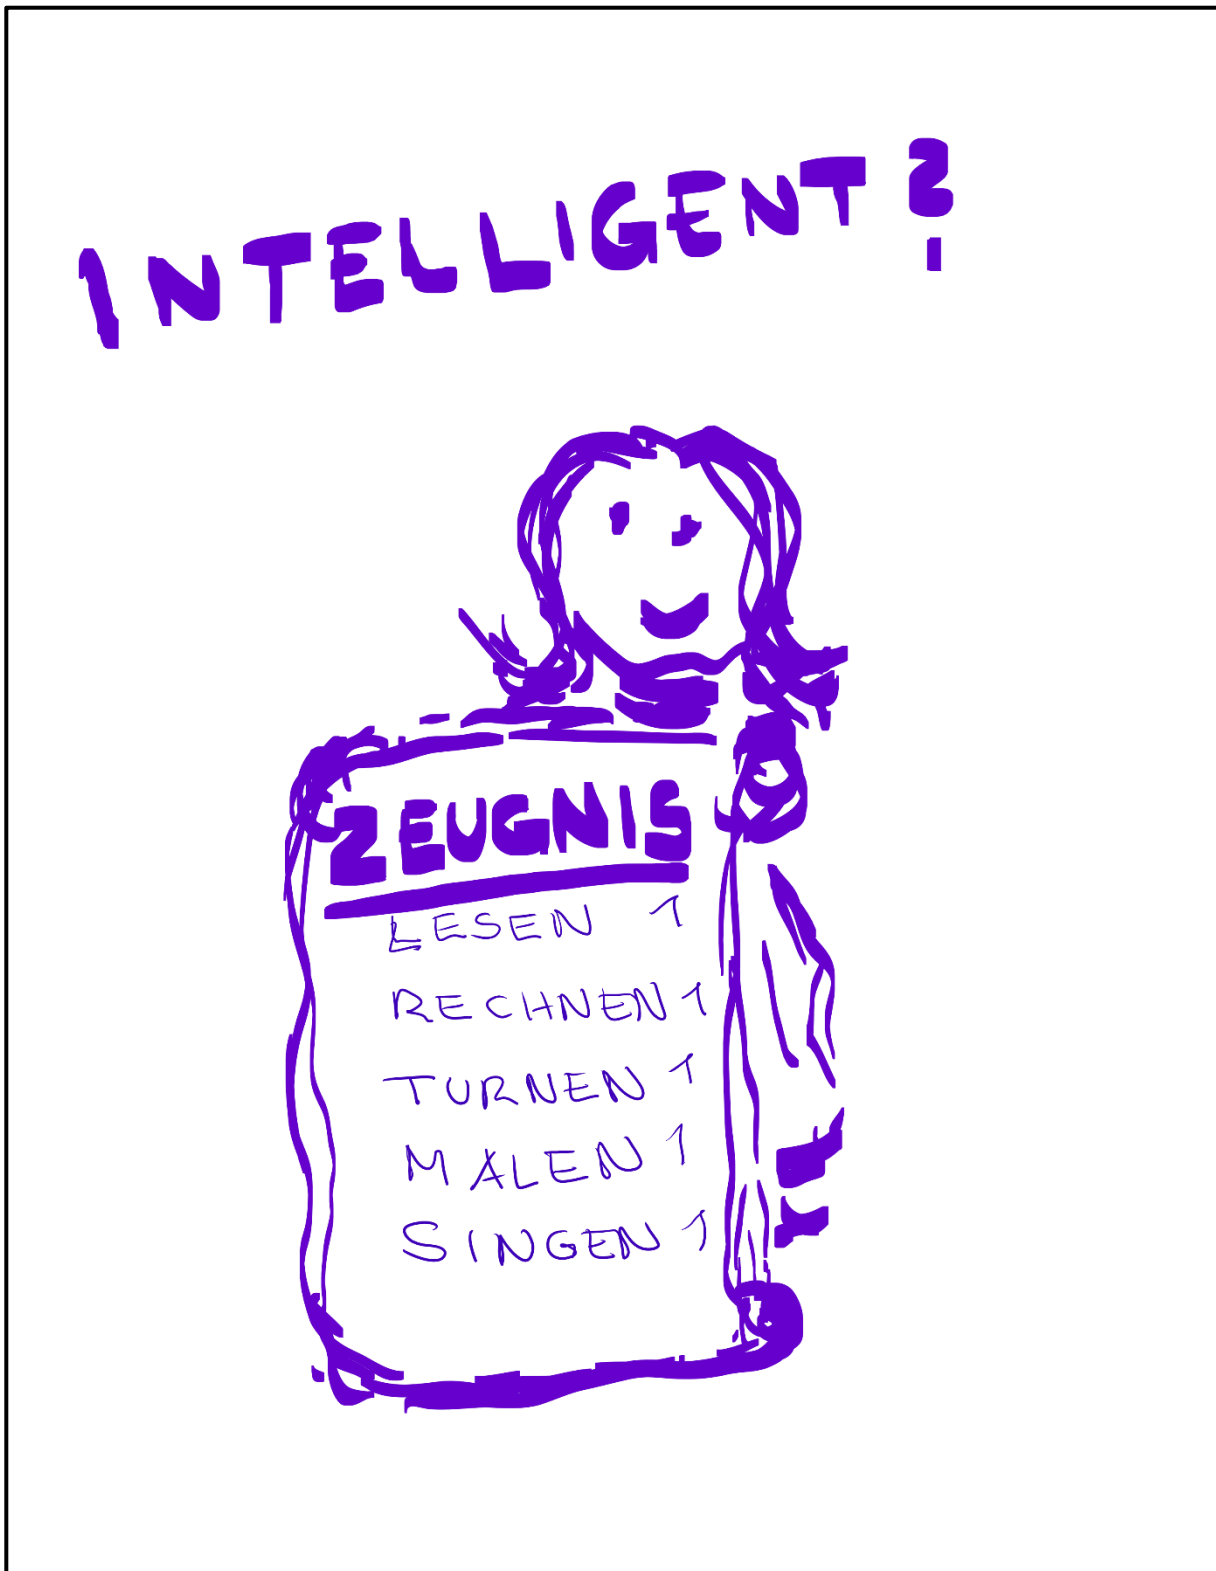 INTELLIGENT?
ZEUGNIS
LESEN 1
RECHNEN 1
TURNEN 1
MALEN 1
SINGEN 1